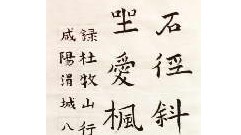 石徑斜
坐愛楓
録杜牧山行
咸陽渭城八